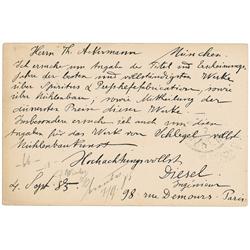 Herrn Th. Ackermann München.
Ich ersuche um Angabe der Titel und Erscheinungs-
jahre der besten und vollständigsten Werke
über Spiritus & Preßhefefabrication, sowie
über Mühlenbau, sowie Mittheilung der
äussersten Preise dieser Werke.
Insbesondere ersuche ich auch um diese
Angaben für das Werk von Schlegel vollst.
Mühlenbaukunst
Hochachtungsvollst
Diesel
Ingenieur
4 Sept 85 98 rue Demours Paris